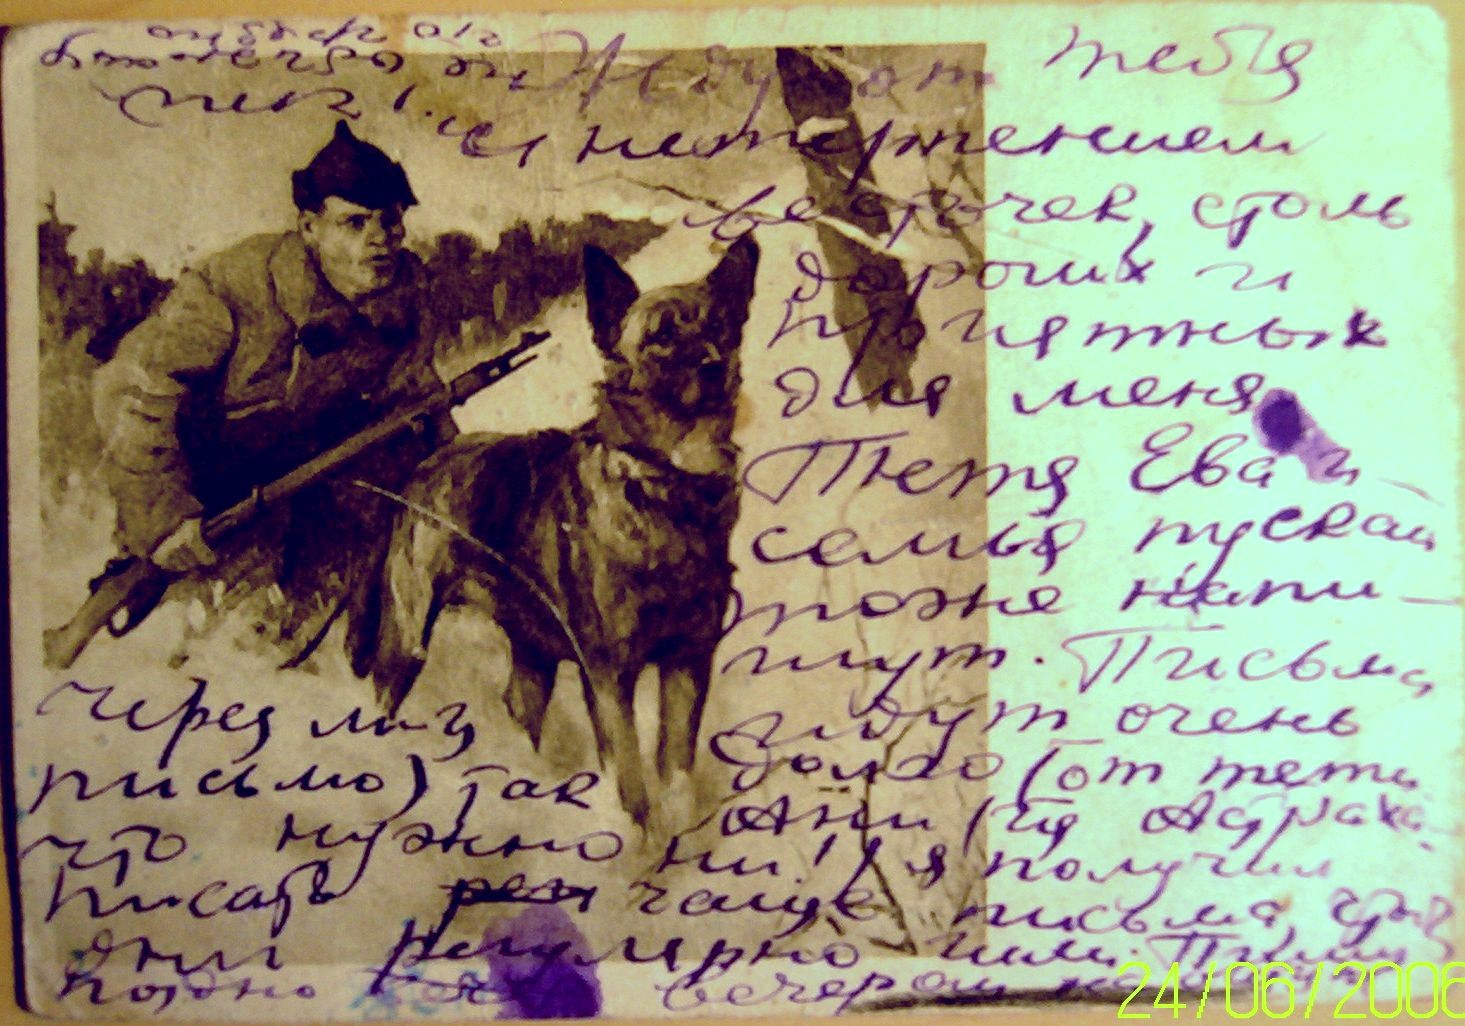 Жду от тебя
с нетерпением
весточек, столь
дорогих и
приятных
для меня
Тетя Ева и
семья пускай
тоже напи-
шут. Письма
идут очень
долго (от тети
Ани (из Астраха-
ни!) я получил
через м-ц
письмо) так
что нужно
писать чаще
письма, чтоб
они регулярно шли.
поздно вечером
24/06/2006